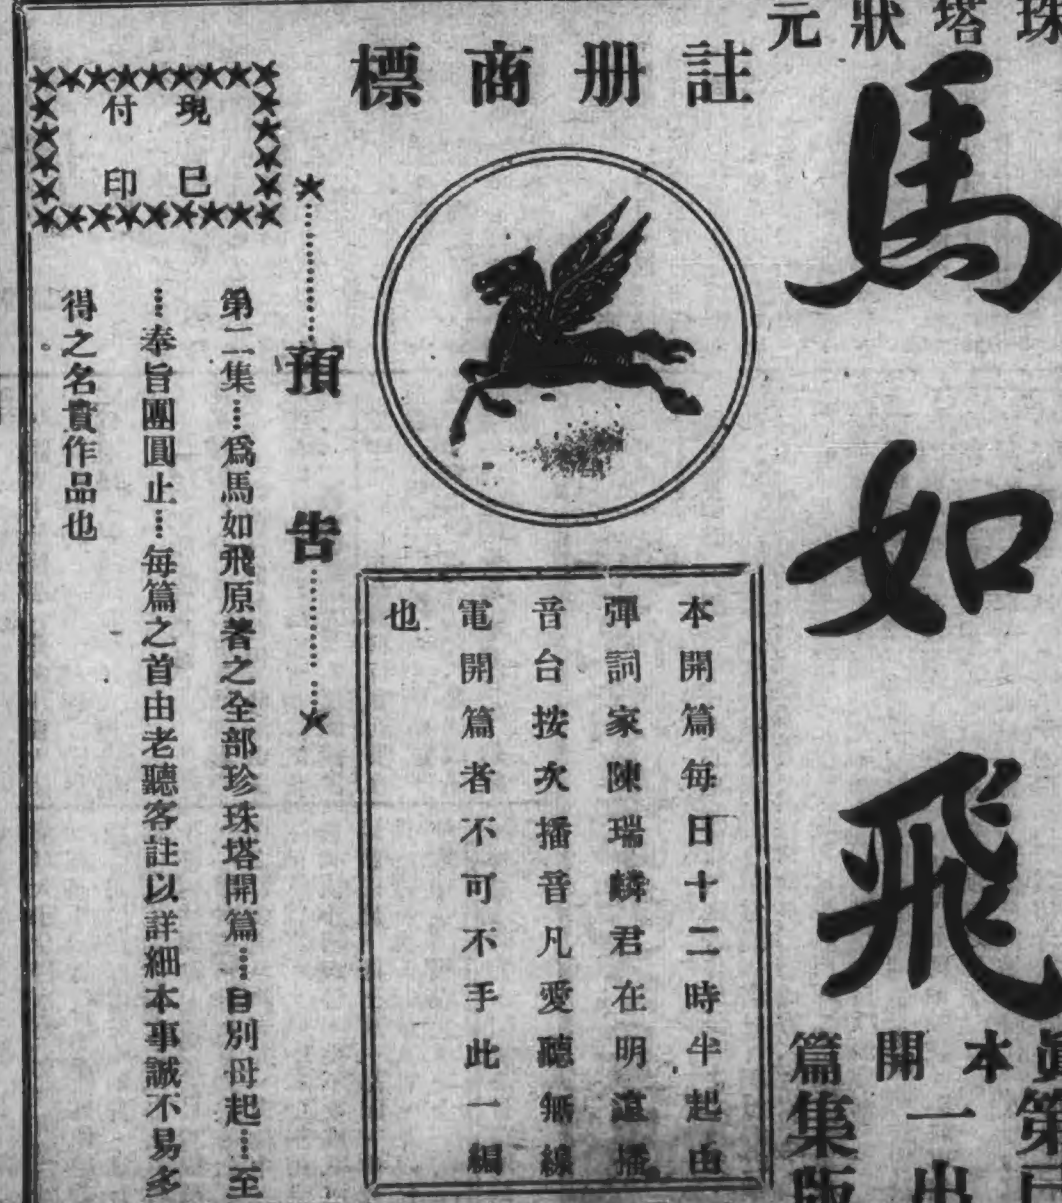 珠塔狀元
馬如飛
本開篇
一集
註册商標
本開篇每日十二時半起由
彈詞家陳瑞麟君在明遠播
音台按次播音凡愛聽無線
電開篇者不可不手此一編
也
預告
現已
付印
第二集……爲馬如飛原著之全部珍珠塔開篇……自別母起……至
……奉旨團圓止……每篇之首由老聽客註以詳細本事誠不易多
得之名貴作品也